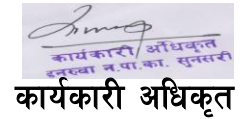 कार्यकारी अधिकृत
इनरुवा न.पा.का. सुनसरी
कार्यकारी अधिकृत